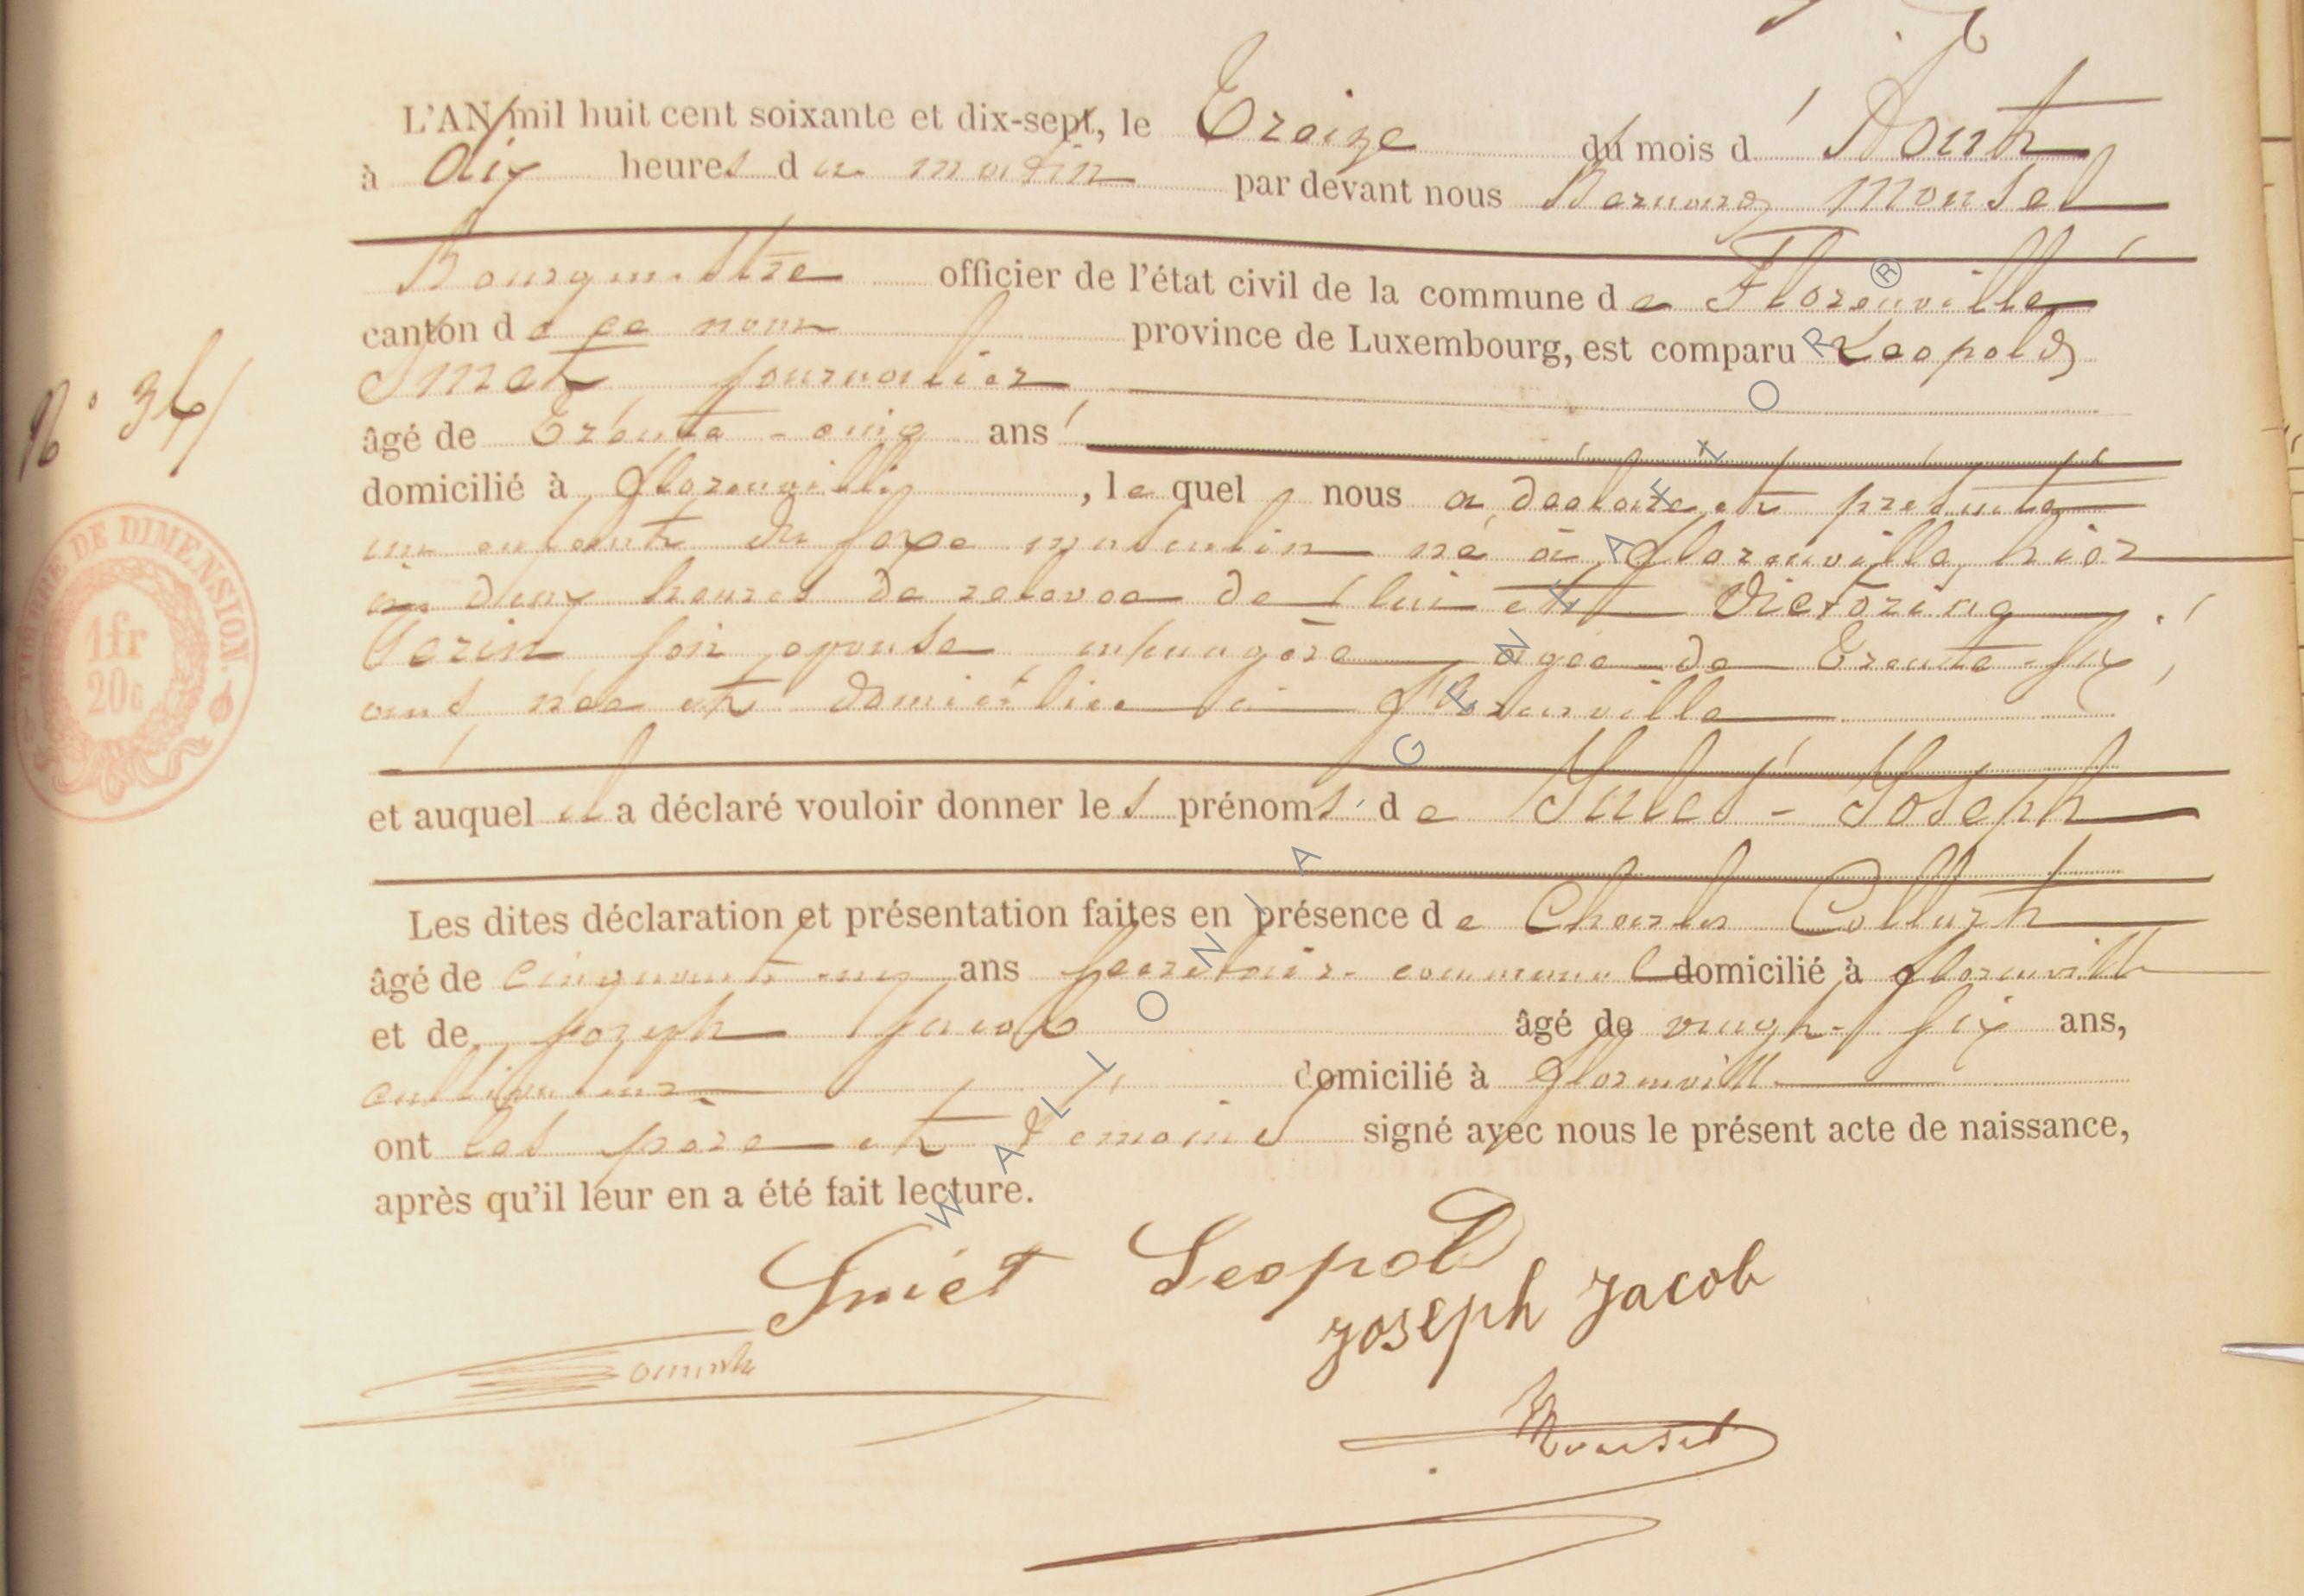 L'AN mil huit cent soixante et dix-sept, le Treize du mois d'Août
à dix heures du matin par devant nous Bernard Mousel
Bourgmestre officier de l'état civil de la commune de Florenville
canton de ce nom province de Luxembourg, est comparu Leopold
Smet journalier
âgé de Trente-cinq ans
domicilié à florenville, le quel nous a déclaré et présenté
un enfant du sexe masculin né à florenville, hier
à deux heures de relevée de lui et Victorine
son épouse, ménagère agée de Trente-six
ans née et domiciliée à florenville
et auquel il a déclaré vouloir donner les prénoms de Jules-Joseph
Les dites déclaration et présentation faites en présence de Charles Collart
âgé de cinquante-un ans secrétaire communal domicilié à florenville
et de Joseph Jacob âgé de vingt-six ans,
cultivateur domicilié à florenville
ont les père et témoins signé avec nous le présent acte de naissance,
après qu'il leur en a été fait lecture.
Smet Leopold
Joseph Jacob
Mousel
TIMBRE DE DIMENSION.
1fr
20c
WALLONIA GENEAFLOR ®